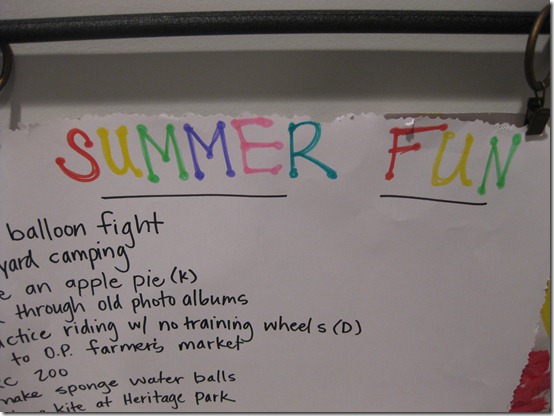 SUMMER FUN
balloon fight
yard camping
e an apple pie (K)
through old photo albums
actice riding w/ no training wheels (D)
to O.P. farmer's market
KC ZOO
make sponge water balls
kite at Heritage Park